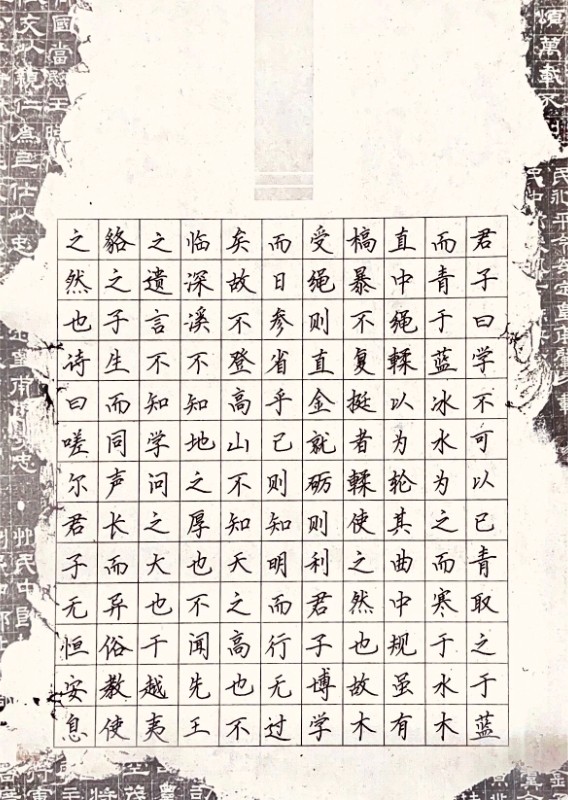 君子曰学不可以已青取之于蓝
而青于蓝冰水为之而寒于水木
直中绳輮以为轮其曲中规虽有
槁暴不复挺者輮使之然也故木
受绳则直金就砺则利君子博学
而日参省乎己则知明而行无过
矣故不登高山不知天之高也不
临深溪不知地之厚也不闻先王
之遗言不知学问之大也干越夷
貉之子生而同声长而异俗教使
之然也诗曰嗟尔君子无恒安息